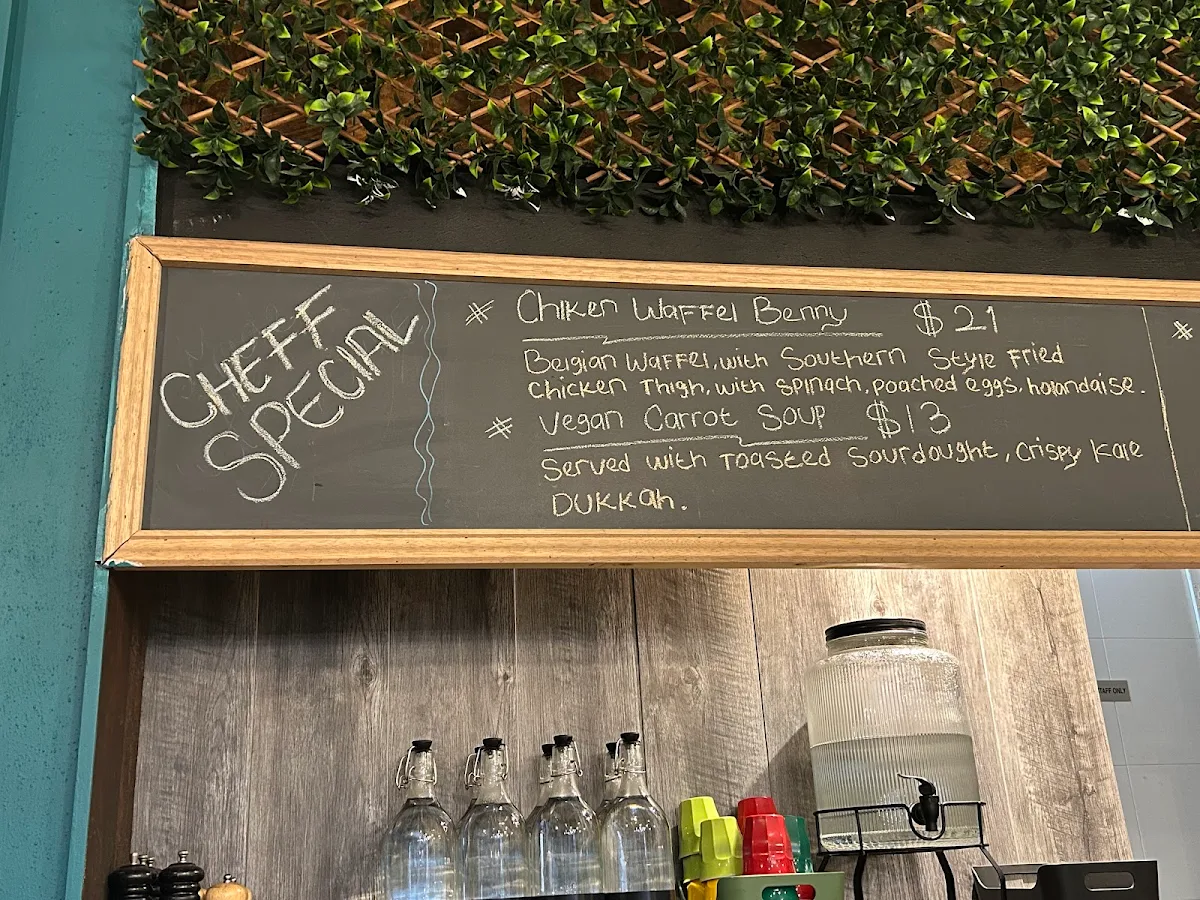 CHEFF
SPECIAL
* Chiken Waffel Benny $21
Belgian Waffel, with Southern Style Fried
Chicken Thigh, with spinach, poached eggs, holandaise.
* Vegan Carrot Soup $13
Served with Toasted Sourdought, Crispy Kale
DUKKah.
*
STAFF ONLY